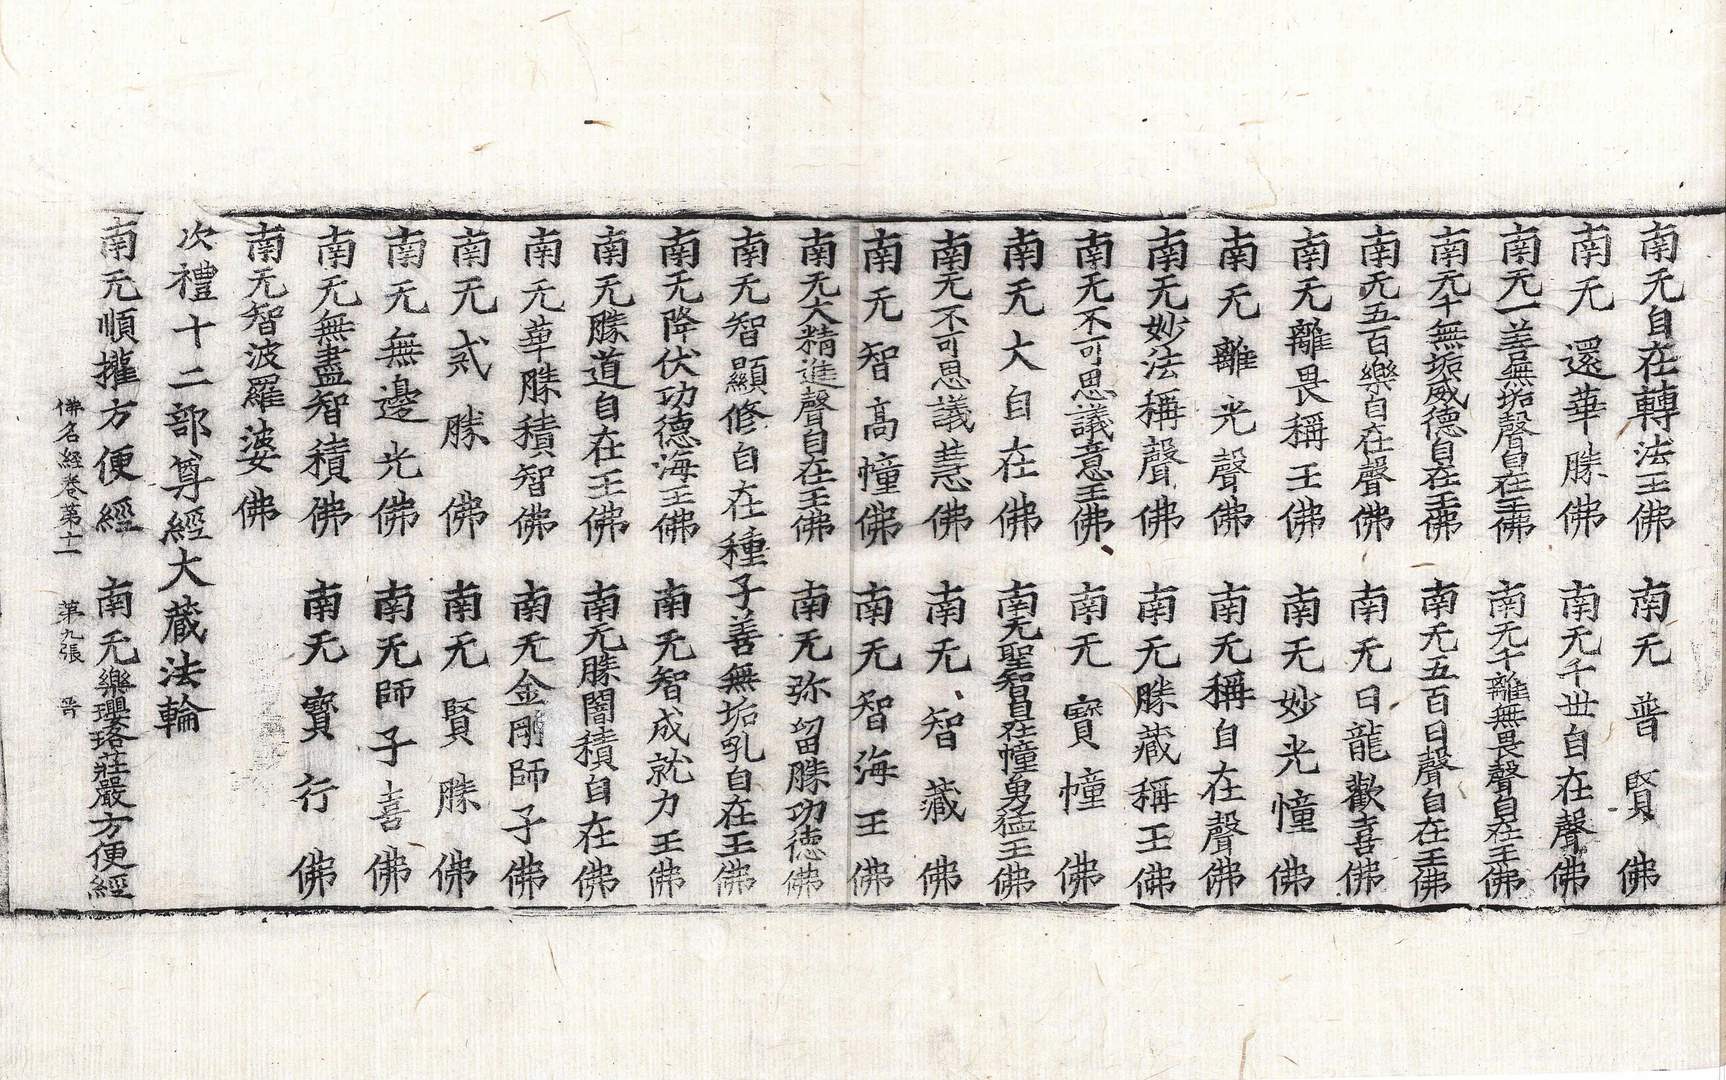 南无自在轉法王佛　南无普賢佛
南无還華勝佛　南无千世自在聲佛
南无一善無垢聲自在王佛　南无千離無畏聲自在王佛
南无千無垢威德自在王佛　南无五百日聲自在王佛
南无五百樂自在聲佛　南无日龍歡喜佛
南无離畏稱王佛　南无妙光憧佛
南无離光聲佛　南无稱自在聲佛
南无妙法稱聲佛　南无勝藏稱王佛
南无不可思議意王佛　南无寶憧佛
南无大自在佛　南无聖智自在憧勇猛王佛
南无不可思議慧佛　南无智藏佛
南无智高憧佛　南无智海王佛
南无大精進聲自在王佛　南无弥留勝功德佛
南无智顯修自在種子善無垢吼自在王佛
南无降伏功德海王佛　南无智成就力王佛
南无勝道自在王佛　南无勝闇積自在佛
南无華勝積智佛　南无金剛師子佛
南无貳勝佛　南无賢勝佛
南无無邊光佛　南无師子喜佛
南无無盡智積佛　南无寶行佛
南无智波羅婆佛
次禮十二部尊經大藏法輪
南无順攡方便經　南无樂瓔珞莊嚴方便經
佛名經卷第十二　第九張